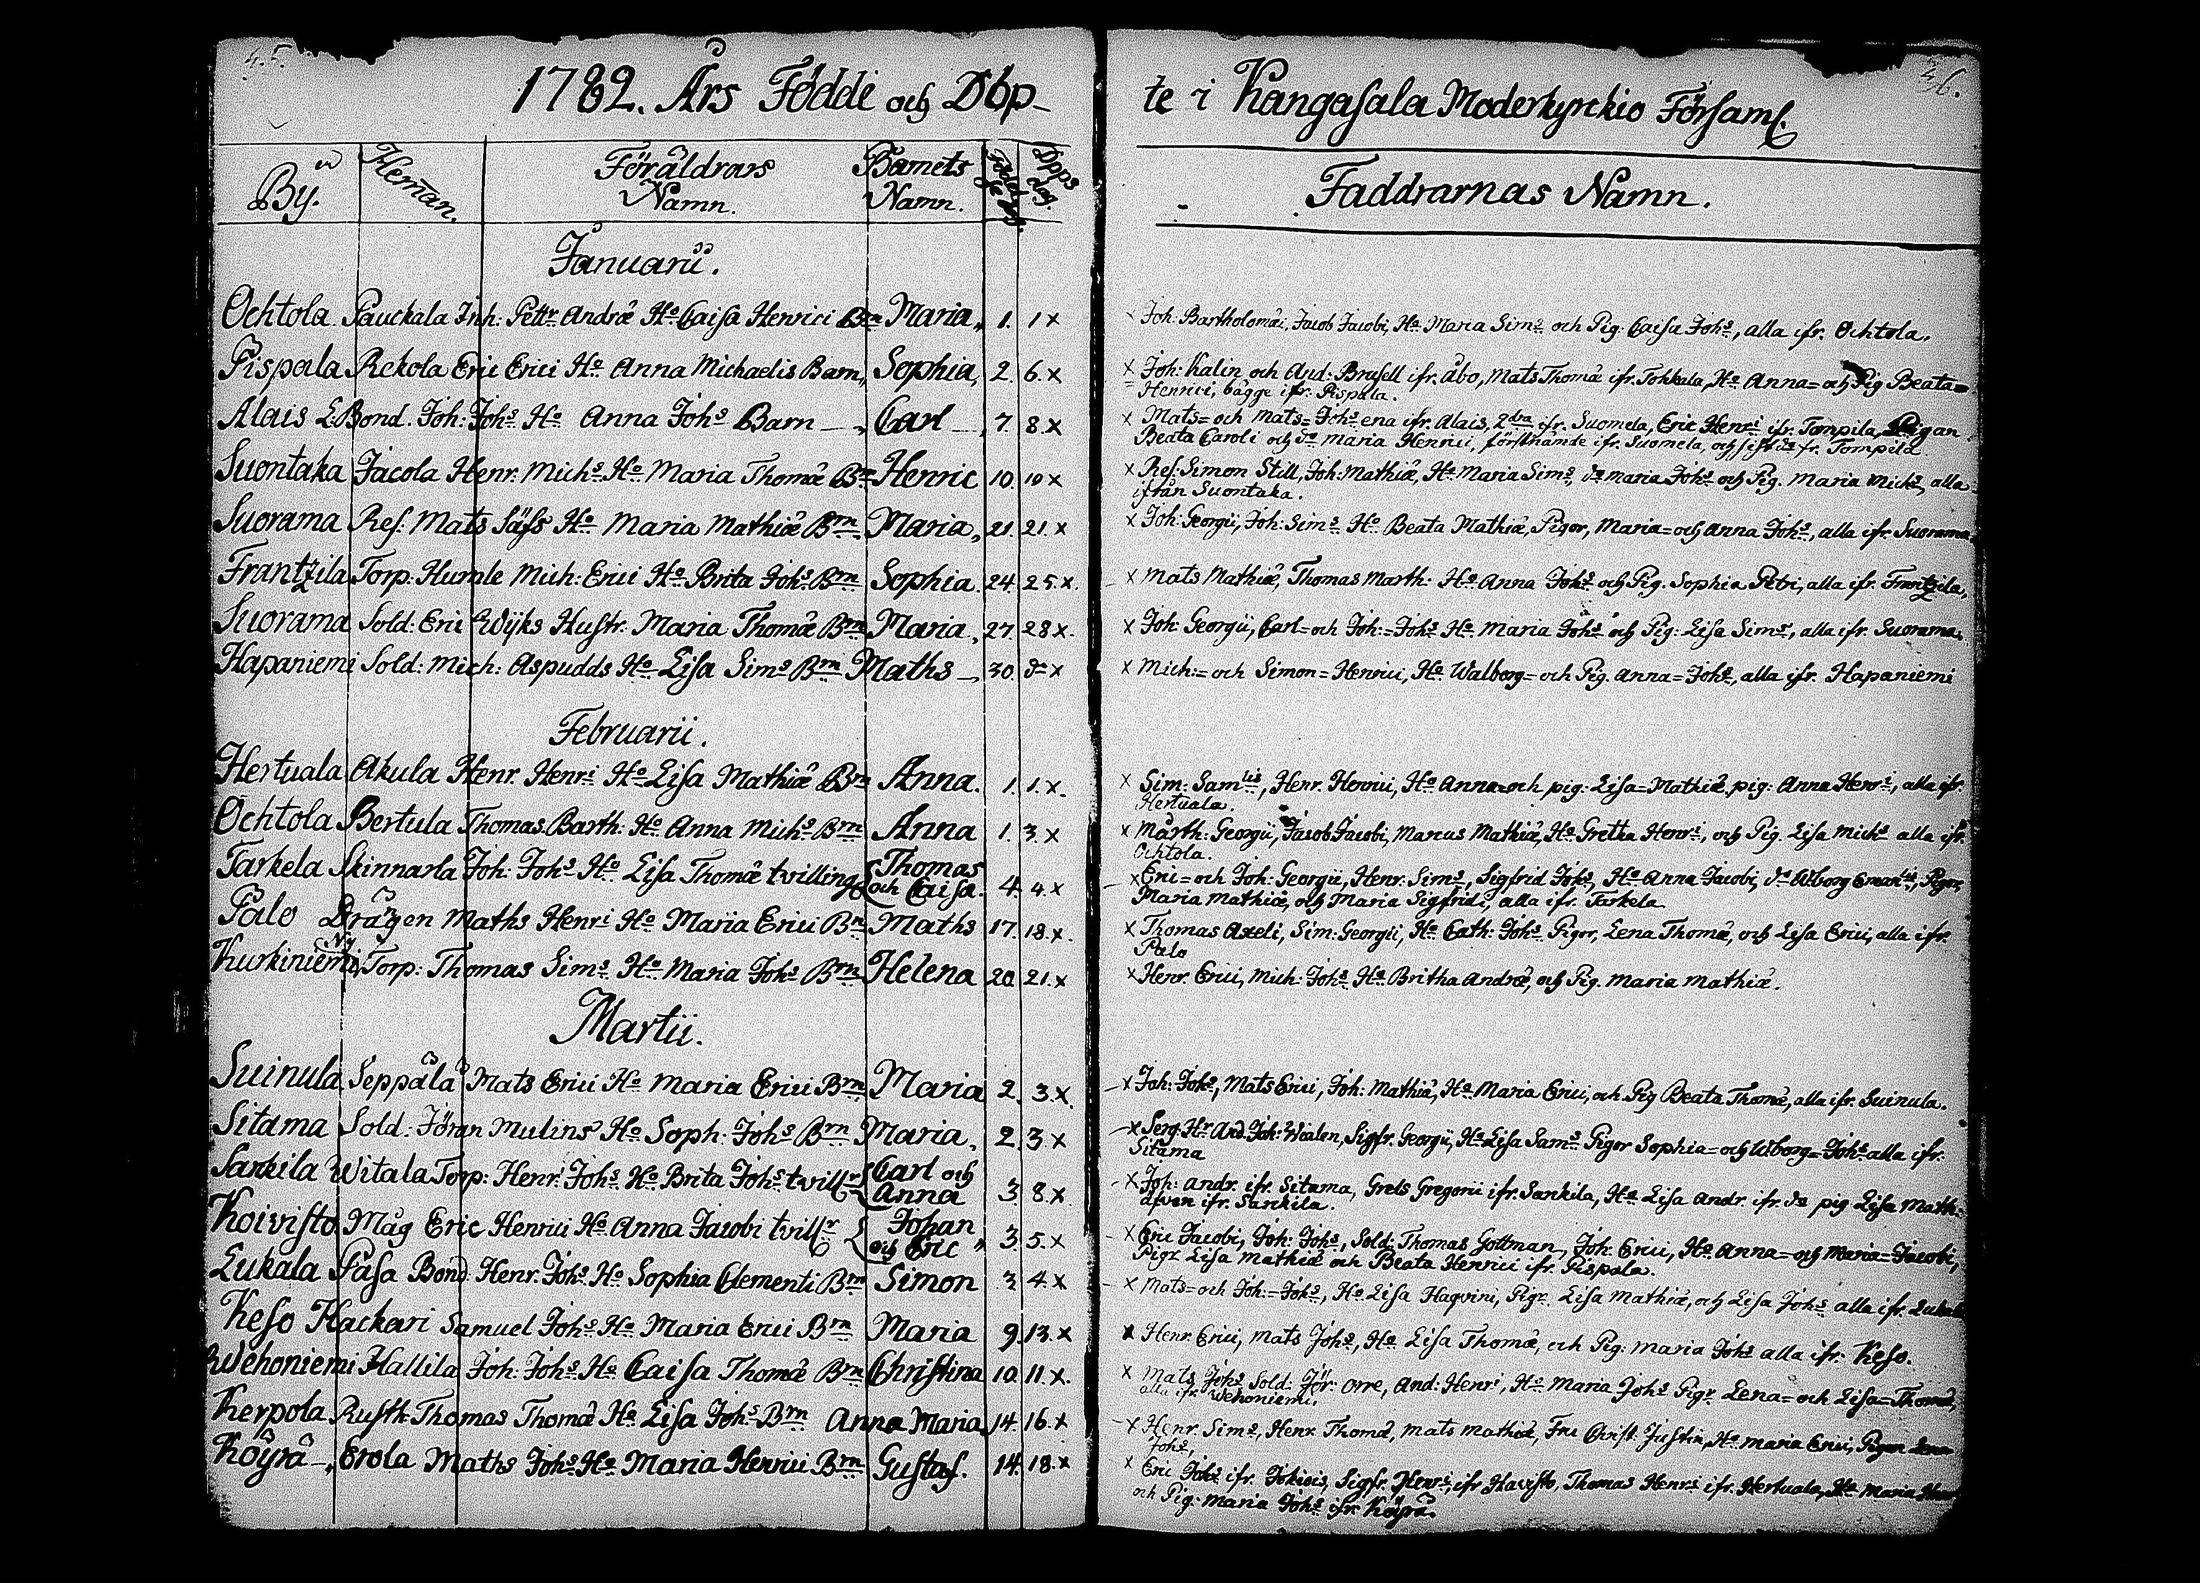 1782. Års Födde och Döp-
By. Heman. Föräldrars Namn. Barnets Namn. Döps dag.
Januarii.
Ochtola Pauckala Inh: Pettr Andræ Ho Caisa Henrici Brn Maria, 1. 1 x
Pispala Rekola Eric Erici Ho Anna Michaelis Barn, Sophia, 2. 6. x
Alais L.Bond. Joh: Johs Ho Anna Johs Barn - Carl - 7 8. x
Suontaka Jacola Henr: Michs Ho Maria Thomæ Brn Henric 10. 10 x
Suorama Ref. Mats Säfs Ho Maria Mathiæ Brn Maria, 21. 21. x
Frantzila Torp. Humle Mich: Erici Ho Brita Johs Brn Sophia. 24. 25. x.
Suorama Sold: Eric Wijks Hustr: Maria Thomæ Brn Maria, 27 28 x.
Hapaniemi Sold: Mich: Aspudds Ho Lisa Sims Brn Maths - 30. do x
Februarii.
Hertuala Akula Henr. Henri Ho Lisa Mathiæ Brn Anna. 1. 1. x.
Ochtola Bertula Thomas Barth: Ho Anna Michs Brn Anna 1. 3. x
Tarkela Skinnarla Joh: Johs Ho Lisa Thomæ tvilling {Thomas och Caisa. 4. 4 x
Palo Drägen Maths Henri Ho Maria Erici Brn Maths 17. 18. x.
Kurkiniemi Ny Torp: Thomas Sims Ho Maria Johs Brn Helena 20. 21. x
Martii.
Suinula Seppälä Mats Erici Ho Maria Erici Brn Maria 2. 3. x.
Sitama Sold: Jöran Mulins Ho Soph: Johs Brn Maria, 2. 3 x
Sarkila Witala Torp: Henr: Johs Ho Brita Johs tvillr {Carl och Anna 3. 8. x
Koivisto Måg Eric Henrici Ho Anna Jacobi tvillr {Johan och Eric " 3. 5. x
Lukala Pasa Bond Henr: Johs Ho Sophia Clementi Brn Simon 3. 4. x
Keso Hackari Samuel Johs Ho Maria Erici Brn Maria 9. 13. x
Wehoniemi Hallila Joh: Johs Ho Caisa Thomæ Brn Christina 10. 11. x.
Kerpola Rusth: Thomas Thomæ Ho Lisa Johs Brn Anna Maria, 14. 16. x
Köyrä -, Erola Maths Johs Ho Maria Henrici Brn Gustaf. 14. 18. x
36.
te i Kangasala Moderkyrckio Församl.
Faddrarnas Namn.
Joh: Bartholomæi, Jacob Jacobi, Ho Maria Sims och Pig. Caisa Johs, alla ifr. Ochtola.
x Joh: Kalin och And: Brusell ifr. Åbo, Mats Thomæ ifr. Tohkala, Ho Anna= och Pig Beata=
Henrici, bägge ifr: Pispala.
x Mats= och Mats= Johs ena ifr. Alais, 2dra ifr. Suomela, Eric Henri ifr. Tompila, Pigan
Beata Caroli och do Maria Henrici, förstnämde ifr. Suomela, och sista fr. Tompila
x Ref: Simon Still, Joh: Mathiæ, Ho Maria Sims, do Maria Johs och Pig. Maria Michs, alla
ifrån Suontaka.
x Joh: Georgii, Joh: Sims Ho Beata Mathiæ, Pigor, Maria= och Anna Johs, alla ifr. Suorama
x Mats Mathiæ, Thomas Marth: Ho Anna Johs och Pig. Sophia Petri, alla ifr. Frantzila,
x Joh: Georgii, Carl= och Joh:= Johs Ho Maria Johs och Pig: Lisa Sims, alla ifr. Suorama.
x Mich:= och Simon= Henrici, Ho Walborg= och Pig. Anna= Johs, alla ifr. Hapaniemi
x Sim: Samlis, Henr. Henrici, Ho Anna= och pig. Lisa= Mathiæ pig: Anna Henri, alla ifr.
Hertuala.
x Marth: Georgii, Jacob Jacobi, Marcus Mathiæ, Ho Gretha Henri, och Pig. Lisa Michs alla ifr.
Ochtola.
x Eric= och Joh: Georgii, Henr: Sims, Sigfrid Johs, Ho Anna Jacobi, do Wborg Emanlis, Pigor,
Maria Mathiæ, och Maria Sigfridi, alla ifr. Tarkela
x Thomas Axeli, Sim: Georgii, Ho Cath: Johs Pigor, Lena Thomæ, och Lisa Erici, alla ifr.
Palo
x Henr. Erici, Mich: Johs Ho Britha Andræ, och Pig. Maria Mathiæ.
x Joh: Johs, Mats Erici, Joh: Mathiæ, Ho Maria Erici, och Pig Beata Thomæ, alla ifr. Suinula.
x Serg: Hr And. Joh: Walen, Sigfr. Georgii, Ho Lisa Sams Pigor Sophia= och Wborg= Johs alla ifr:
Sitama
x Joh: Andr. ifr. Sitama, Grels Gregorii ifr. Sarkila, Ho Lisa Andr. ifr. do pig Lisa Math:
äfven ifr. Sarkila.
x Eric Jacobi, Joh: Johs, Sold: Thomas Gottman, Joh: Erici, Ho Anna= och Maria= Jacobi,
Pigr Lisa Mathiæ och Beata Henrici ifr. Pispala.
x Mats= och Joh:= Johs, Ho Lisa Haqvini, Pigr. Lisa Mathiæ, och Lisa Johs alla ifr. Lukala
x Henr. Erici, Mats Johs, Ho Lisa Thomæ, och Pig: Maria Johs alla ifr: Keso.
x Mats Johs Sold: Jör: Orre, And: Henri, Ho Maria Johs Pigr Lena= och Lisa= Thomæ,
alla ifr. Wehoniemi.
x Henr. Sims, Henr. Thomæ, Mats Mathiæ, Fru Christ: Justin, Ho Maria Erici, Pigan
Johs,
x Eric Johs ifr. Sigfr. Henri, ifr Havisto, Thomas Henri ifr. Hertuala, Ho Maria
och Pig. Maria Johs ifr. Köyrä.